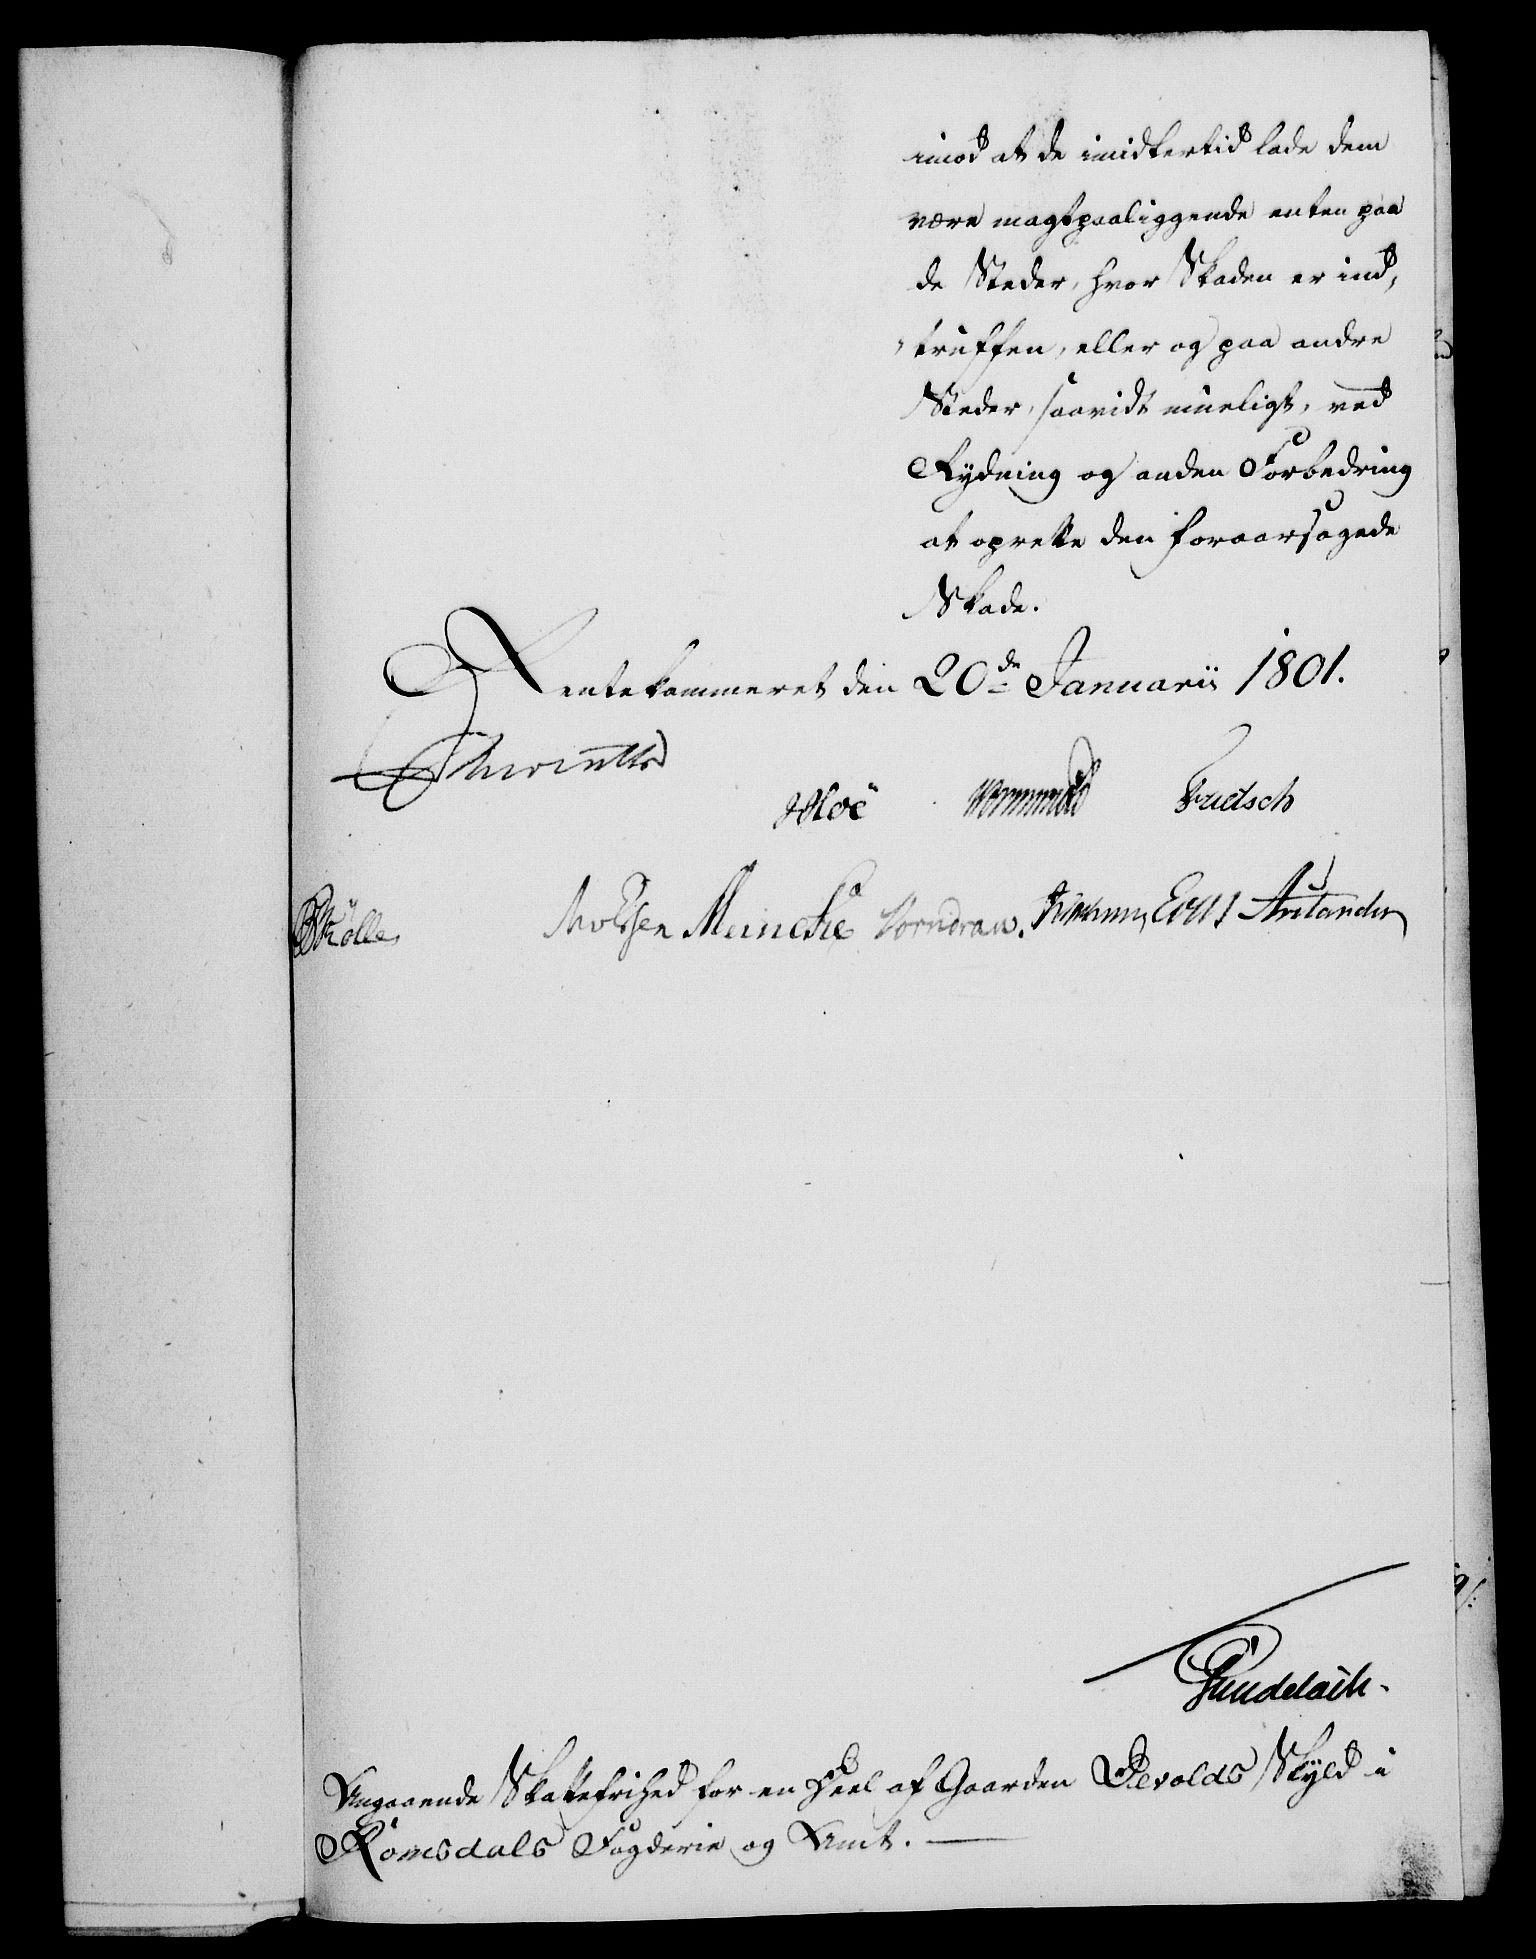 imod at de imidlertid lade dem
være magtpaaliggende enten paa
de Steder, hvor Skaden er ind,
truffen, eller og paa andre
Steder, saavidt mueligt, ved
Rydning og anden Forbedring
at oprette den foraarsagede
Skade.
Rentekammeret den 20de Januarii 1801.
Hoë Wormskiold Frietsch
Rølle Knudsen Meincke Vorndran. Evers
Gundelach.
Angaaende Skattefrihed for en Deel af Gaarden Devolds Skyld i
Romsdals Fogderie og Amt.